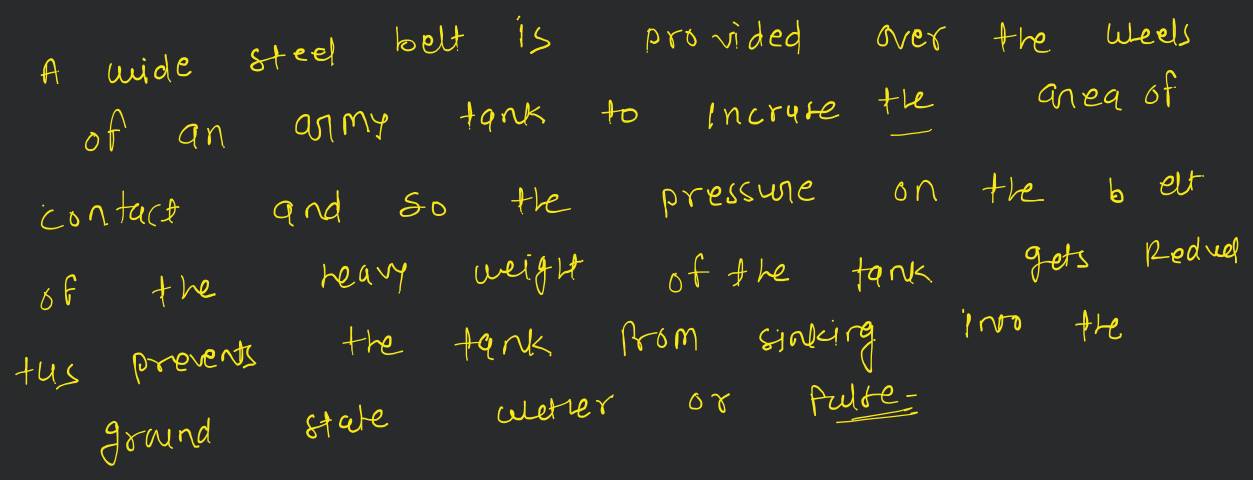 A wide steel belt is provided over the weels
of an army tank to increase the area of
contact and so the pressure on the belt
of the heavy weight of the tank gets Reduced
tus prevents the tank from sinking into the
ground state wether or false